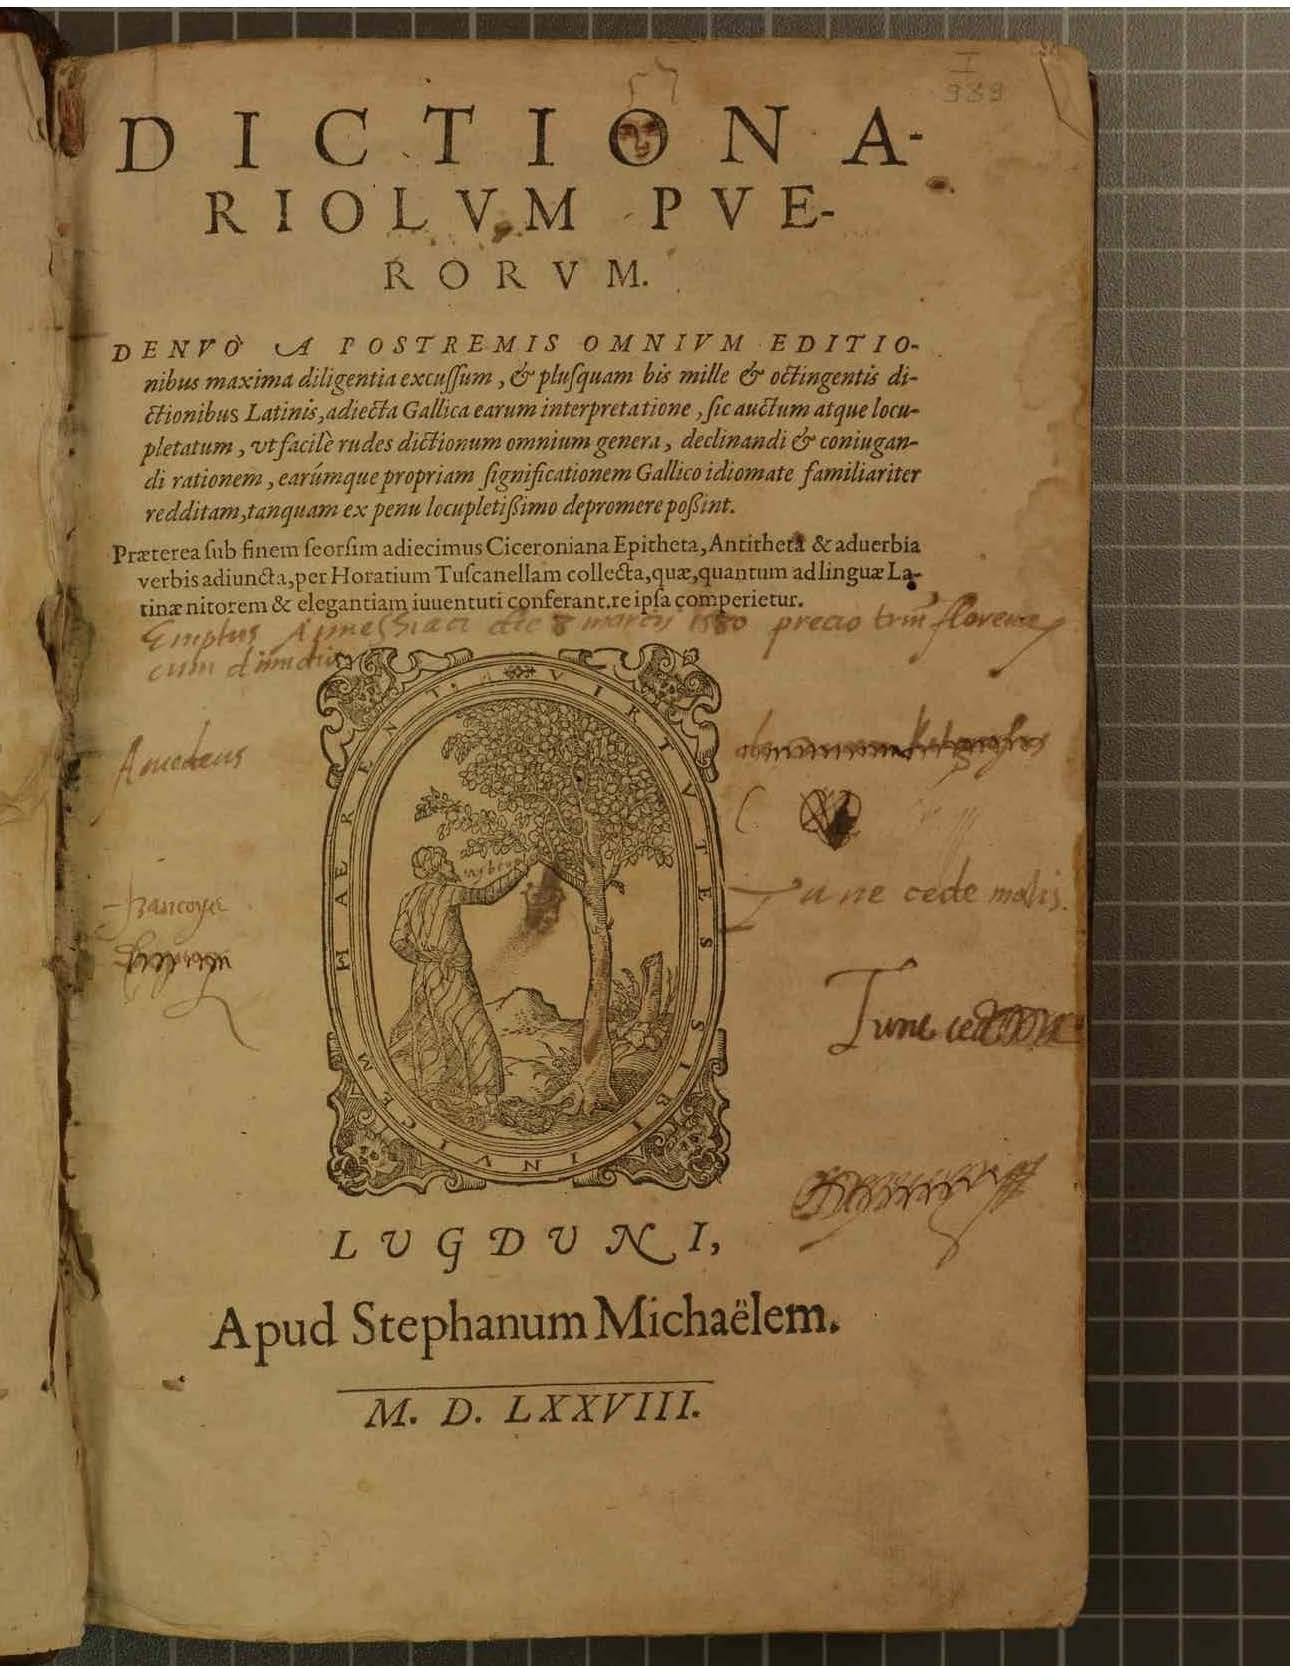 I
939
DICTIONA-
RIOLVM PVE-
RORVM.
DENVÒ A POSTREMIS OMNIVM EDITIO-
nibus maxima diligentia excuſſum, & pluſquam bis mille & octingentis di-
ctionibus Latinis, adiecta Gallica earum interpretatione, ſic auctum atque locu-
pletatum, vt facilè rudes dictionum omnium genera, declinandi & coniugan-
di rationem, earúmque propriam ſignificationem Gallico idiomate familiariter
redditam, tanquam ex penu locupletiſſimo depromere poſſint.
Præterea ſub finem ſeorſim adiecimus Ciceroniana Epitheta, Antitheta & aduerbia
verbis adiuncta, per Horatium Tuſcanellam collecta, quæ, quantum ad linguæ La-
tinæ nitorem & elegantiam iuuentuti conferant. re ipſa comperietur.
Emptus die 8 1580 precio
cum
VIRTUTES SIBI INVICEM MAERENT.
Amedeus
francoyse
Tu ne cede malis.
Tu ne
LUGDUNI,
Apud Stephanum Michaëlem.
M. D. LXXVIII.